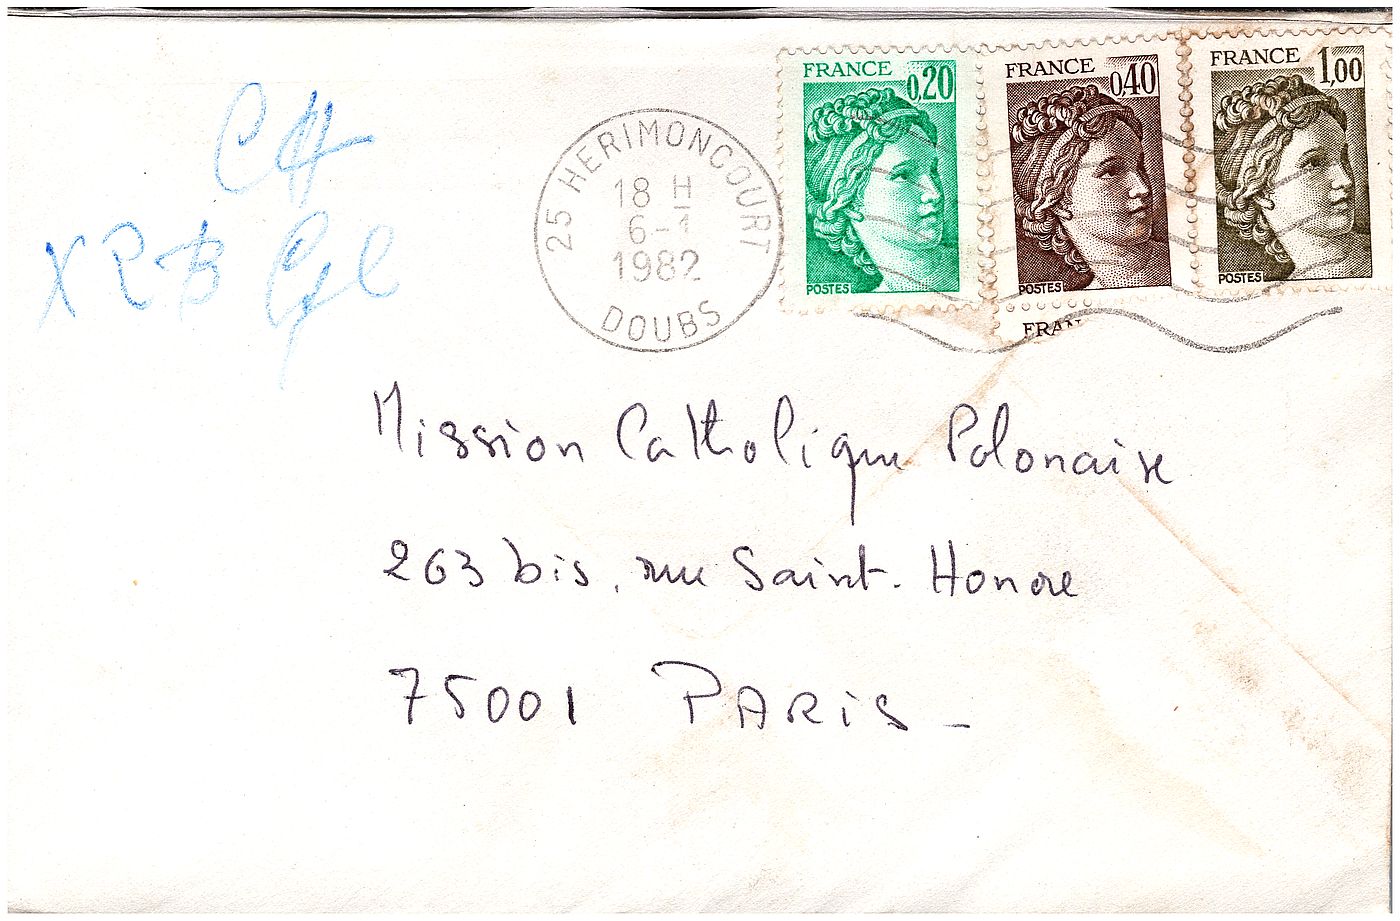 FRANCE 0,20
POSTES
FRANCE 0,40
POSTES
FRAN
FRANCE 1,00
POSTES
25 HERIMONCOURT
18 H
6-1
1982
DOUBS
Mission Catholique Polonaise
263 bis, rue Saint-Honoré
75001 PARIS